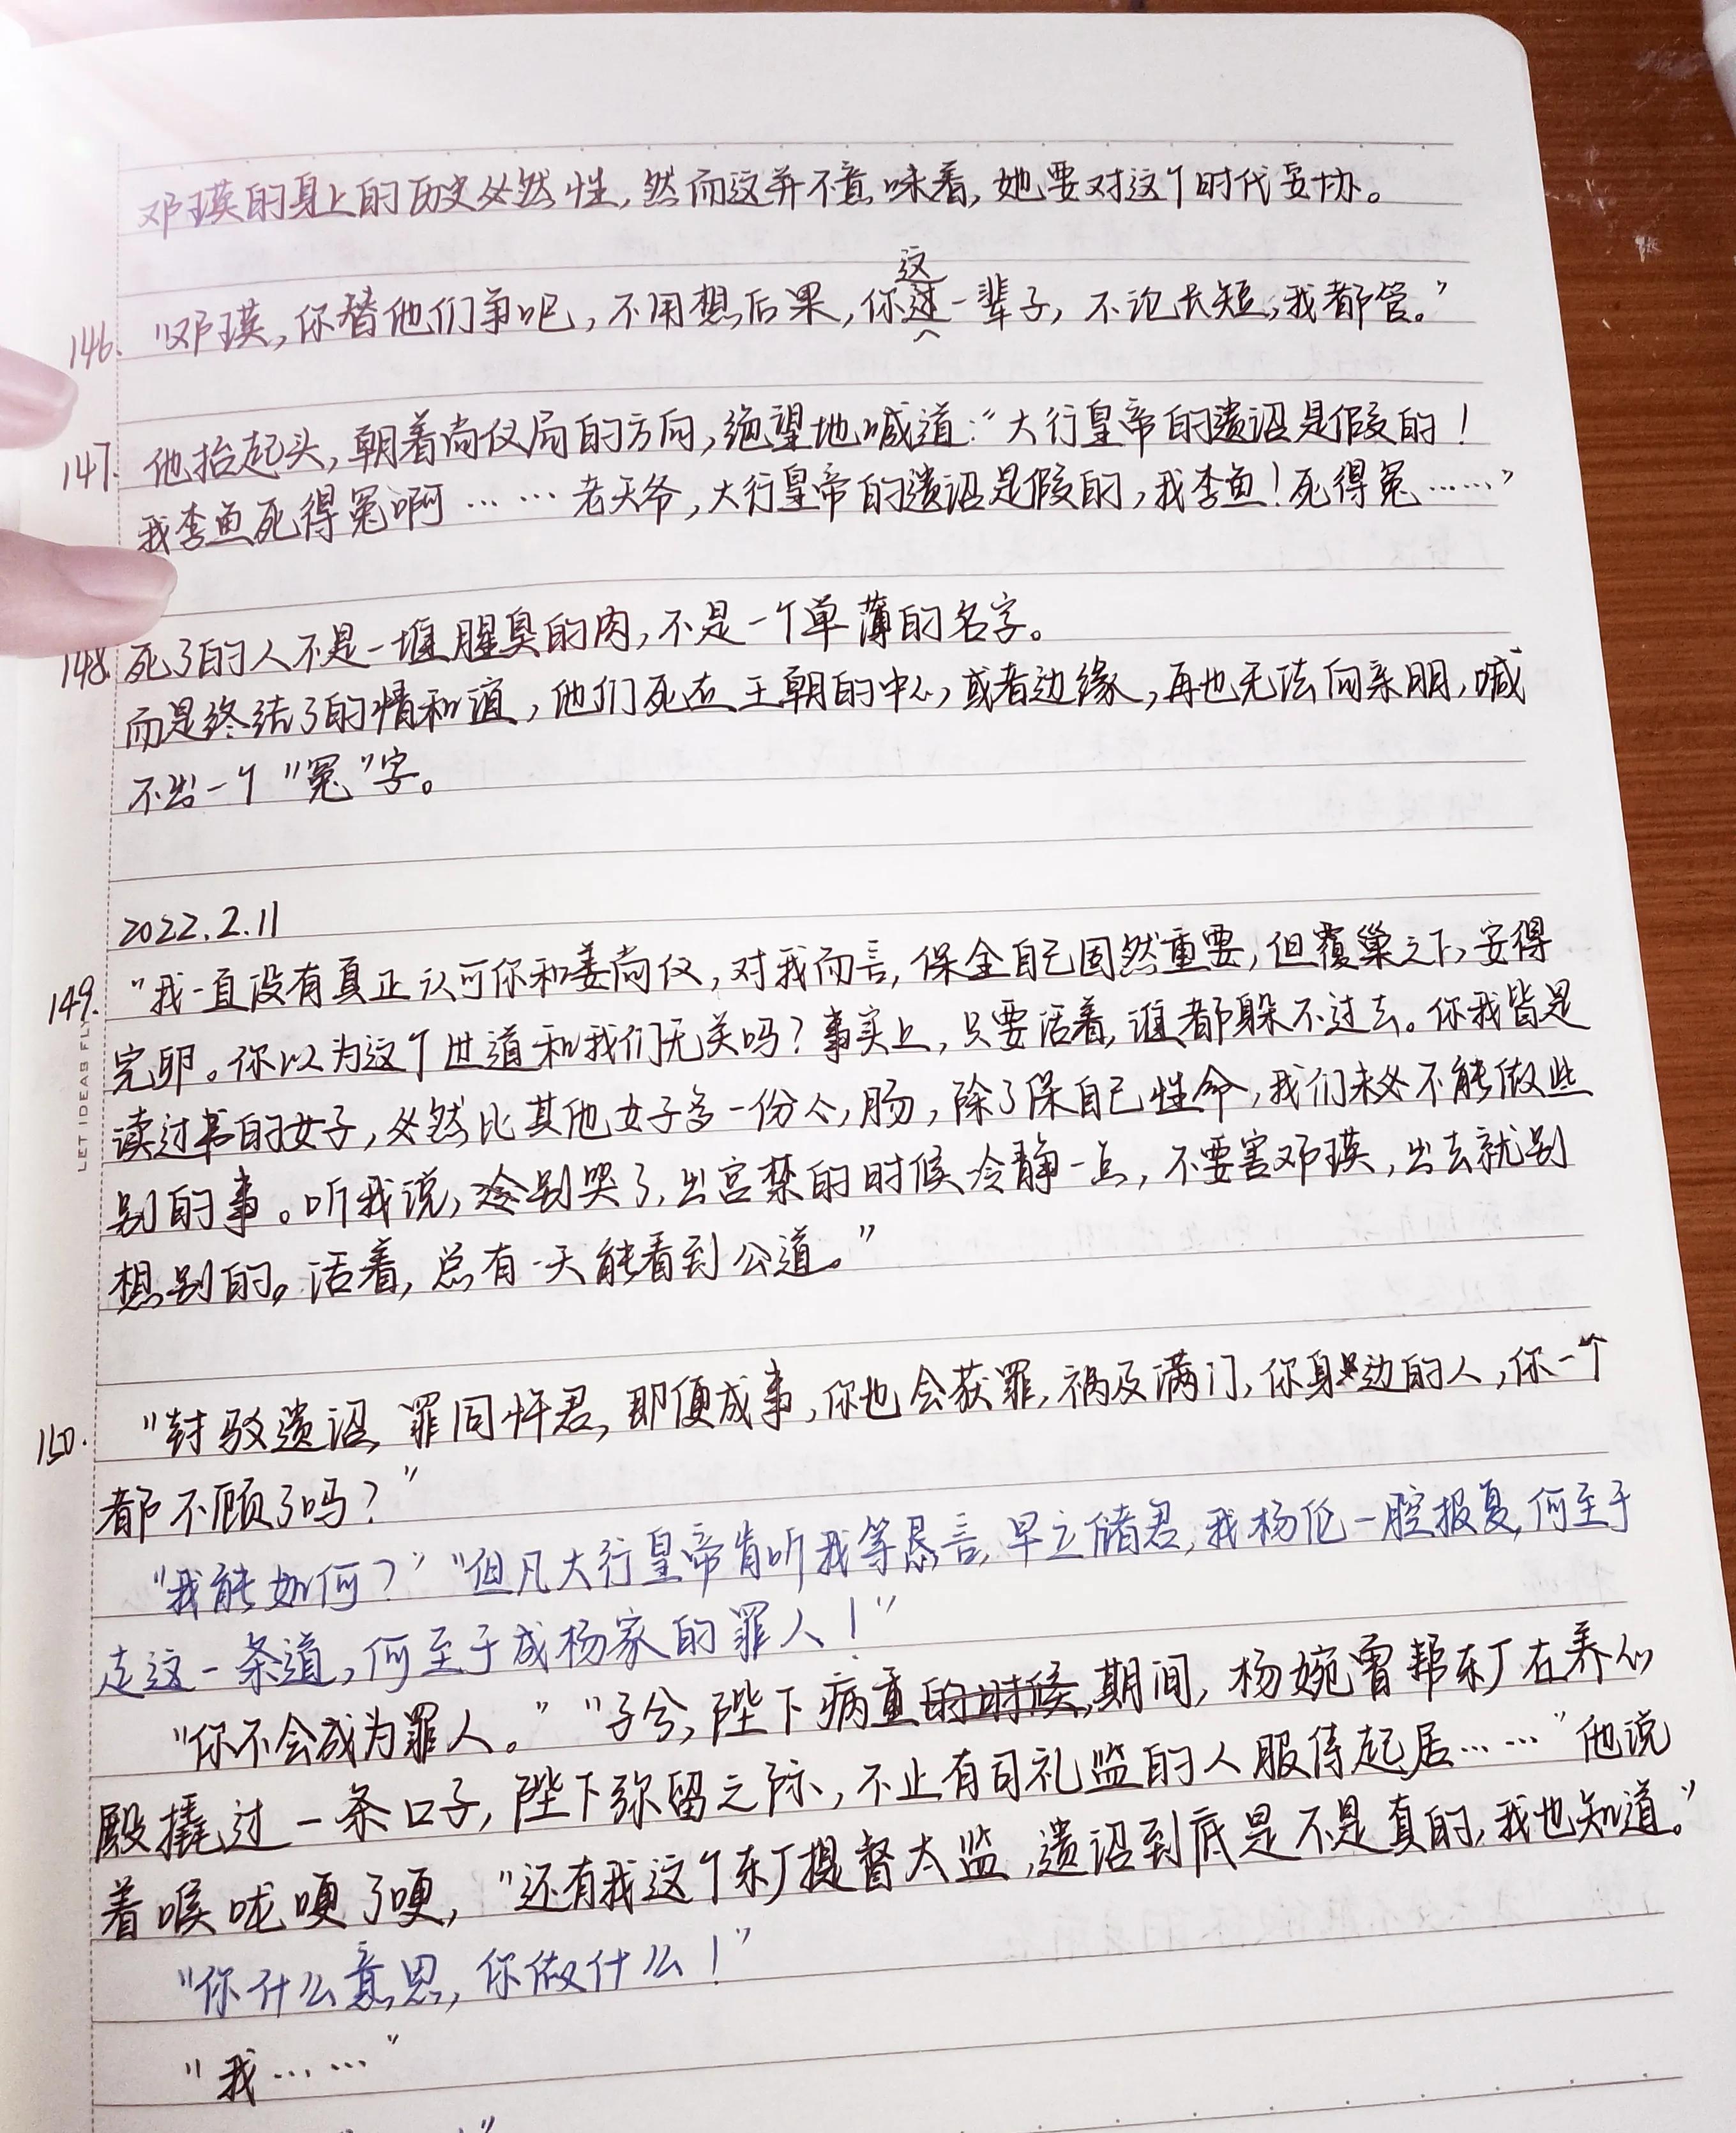 邓瑛的身上的历史必然性，然而这并不意味着，她要对这个时代妥协。
这
146. “邓瑛，你替他们争吧，不用想后果，你这一辈子，不论长短，我都管。”
147. 他抬起头，朝着尚仪局的方向，绝望地喊道：“大行皇帝的遗诏是假的！
我李鱼死得冤啊……老天爷，大行皇帝的遗诏是假的，我李鱼！死得冤……”
148. 死了的人不是一堆腥臭的肉，不是一个单薄的名字。
而是终结了的情和谊，他们死在王朝的中心，或者边缘，再也无法向亲朋，喊
不出一个“冤”字。
2022.2.11
149. “我一直没有真正认可你和姜尚仪，对我而言，保全自己固然重要，但覆巢之下，安得
完卵。你以为这个世道和我们无关吗？事实上，只要活着，谁都躲不过去。你我皆是
读过书的女子，必然比其他女子多一份心肠，除了保自己性命，我们未必不能做些
别的事。听我说，别哭了，出宫禁的时候冷静一点，不要害邓瑛，出去就别
想别的。活着，总有一天能看到公道。”
LET IDEAS FLY
150. “封驳遗诏，罪同忤君，即便成事，你也会获罪，祸及满门，你身边的人，你一个
都不顾了吗？”
“我能如何？”“但凡大行皇帝肯听我等愚言，早立储君，我杨伦一腔报复，何至于
走这一条道，何至于成杨家的罪人！”
“你不会成为罪人。”“子兮，陛下病重的时候，期间，杨婉曾帮东厂在养心
殿撬过一条口子，陛下弥留之际，不止有司礼监的人服侍起居……”他说
着喉咙哽了哽，“还有我这个东厂提督太监，遗诏到底是不是真的，我也知道。”
“你什么意思，你做什么！”
“我……”